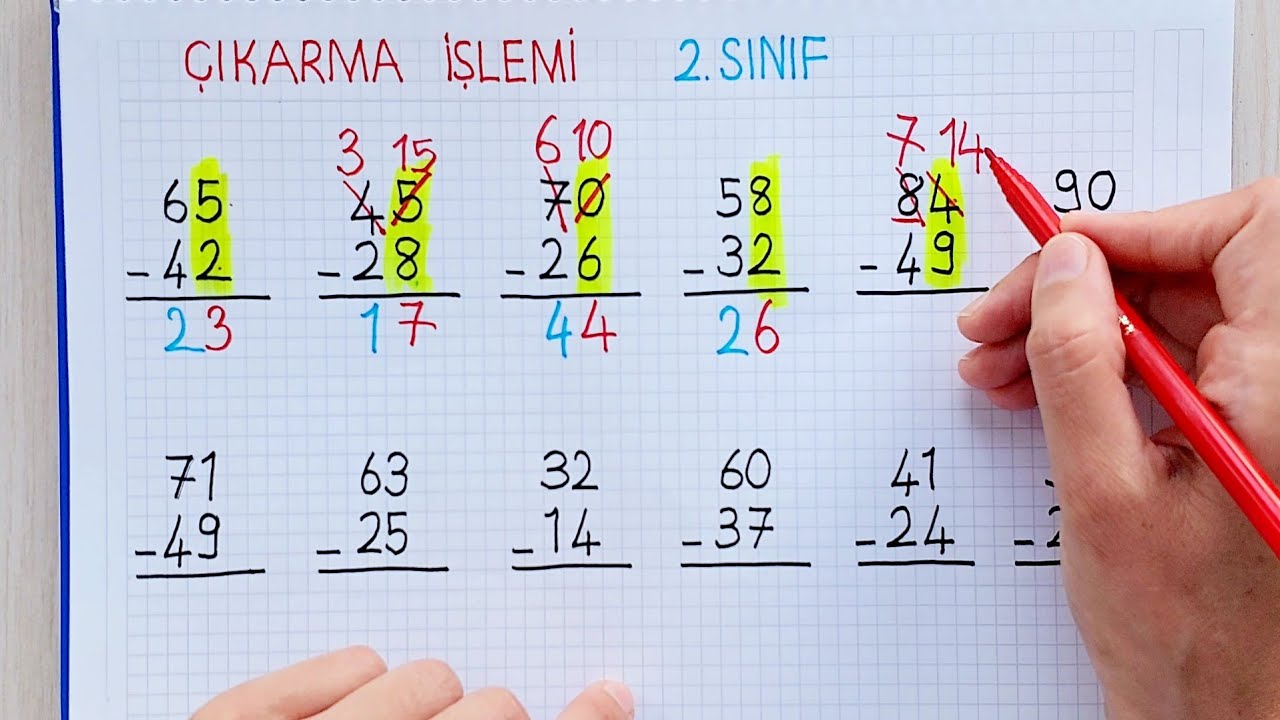 ÇIKARMA İŞLEMİ 2. SINIF
3 15 6 10 7 14
65 45 70 58 84 90
- 42 - 28 - 26 - 32 - 49
23 17 44 26
71 63 32 60 41
- 49 - 25 - 14 - 37 - 24 -